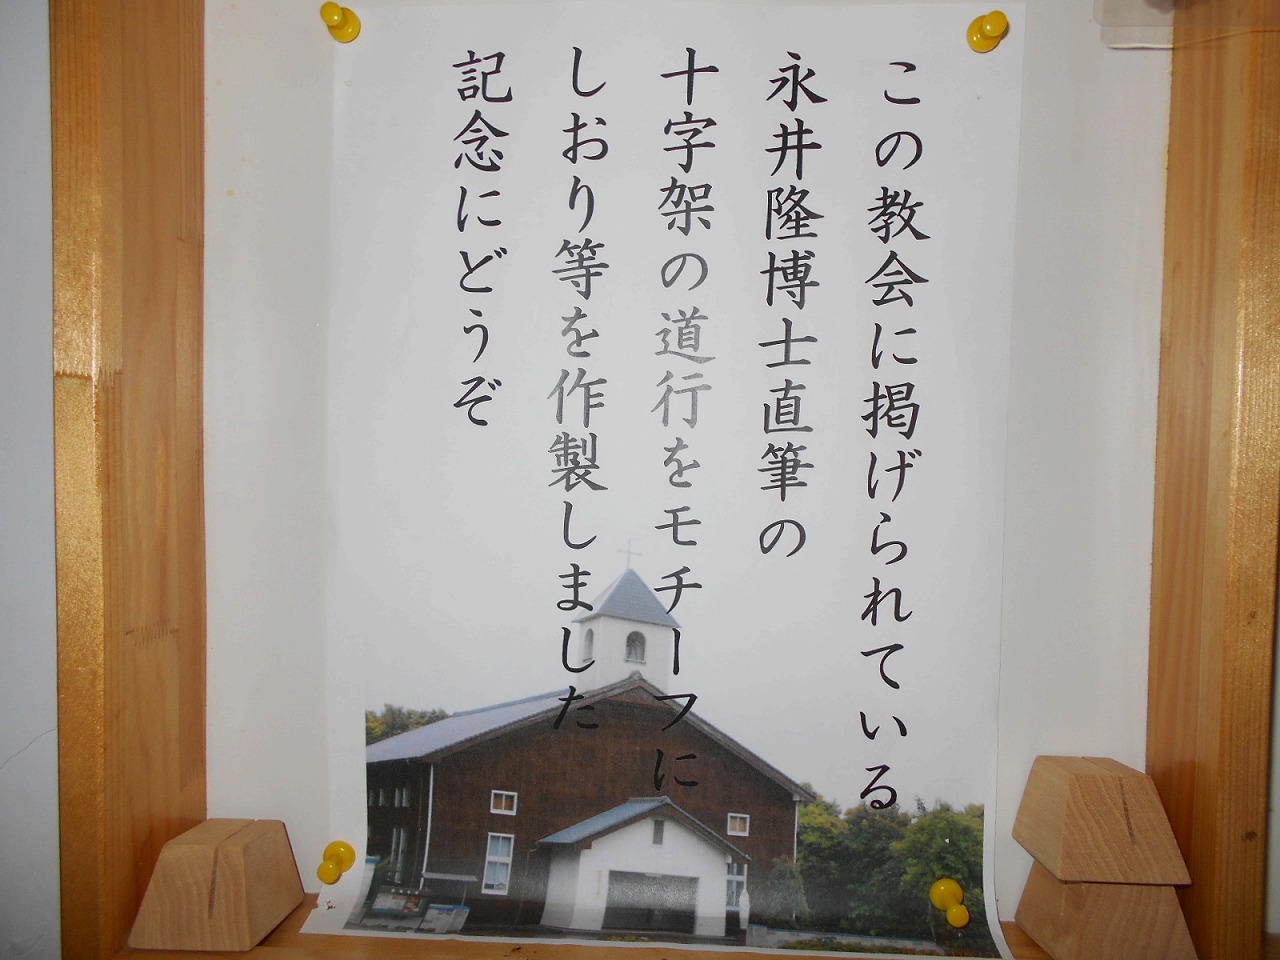 この教会に掲げられている
永井隆博士直筆の
十字架の道行をモチーフに
しおり等を作製しました
記念にどうぞ